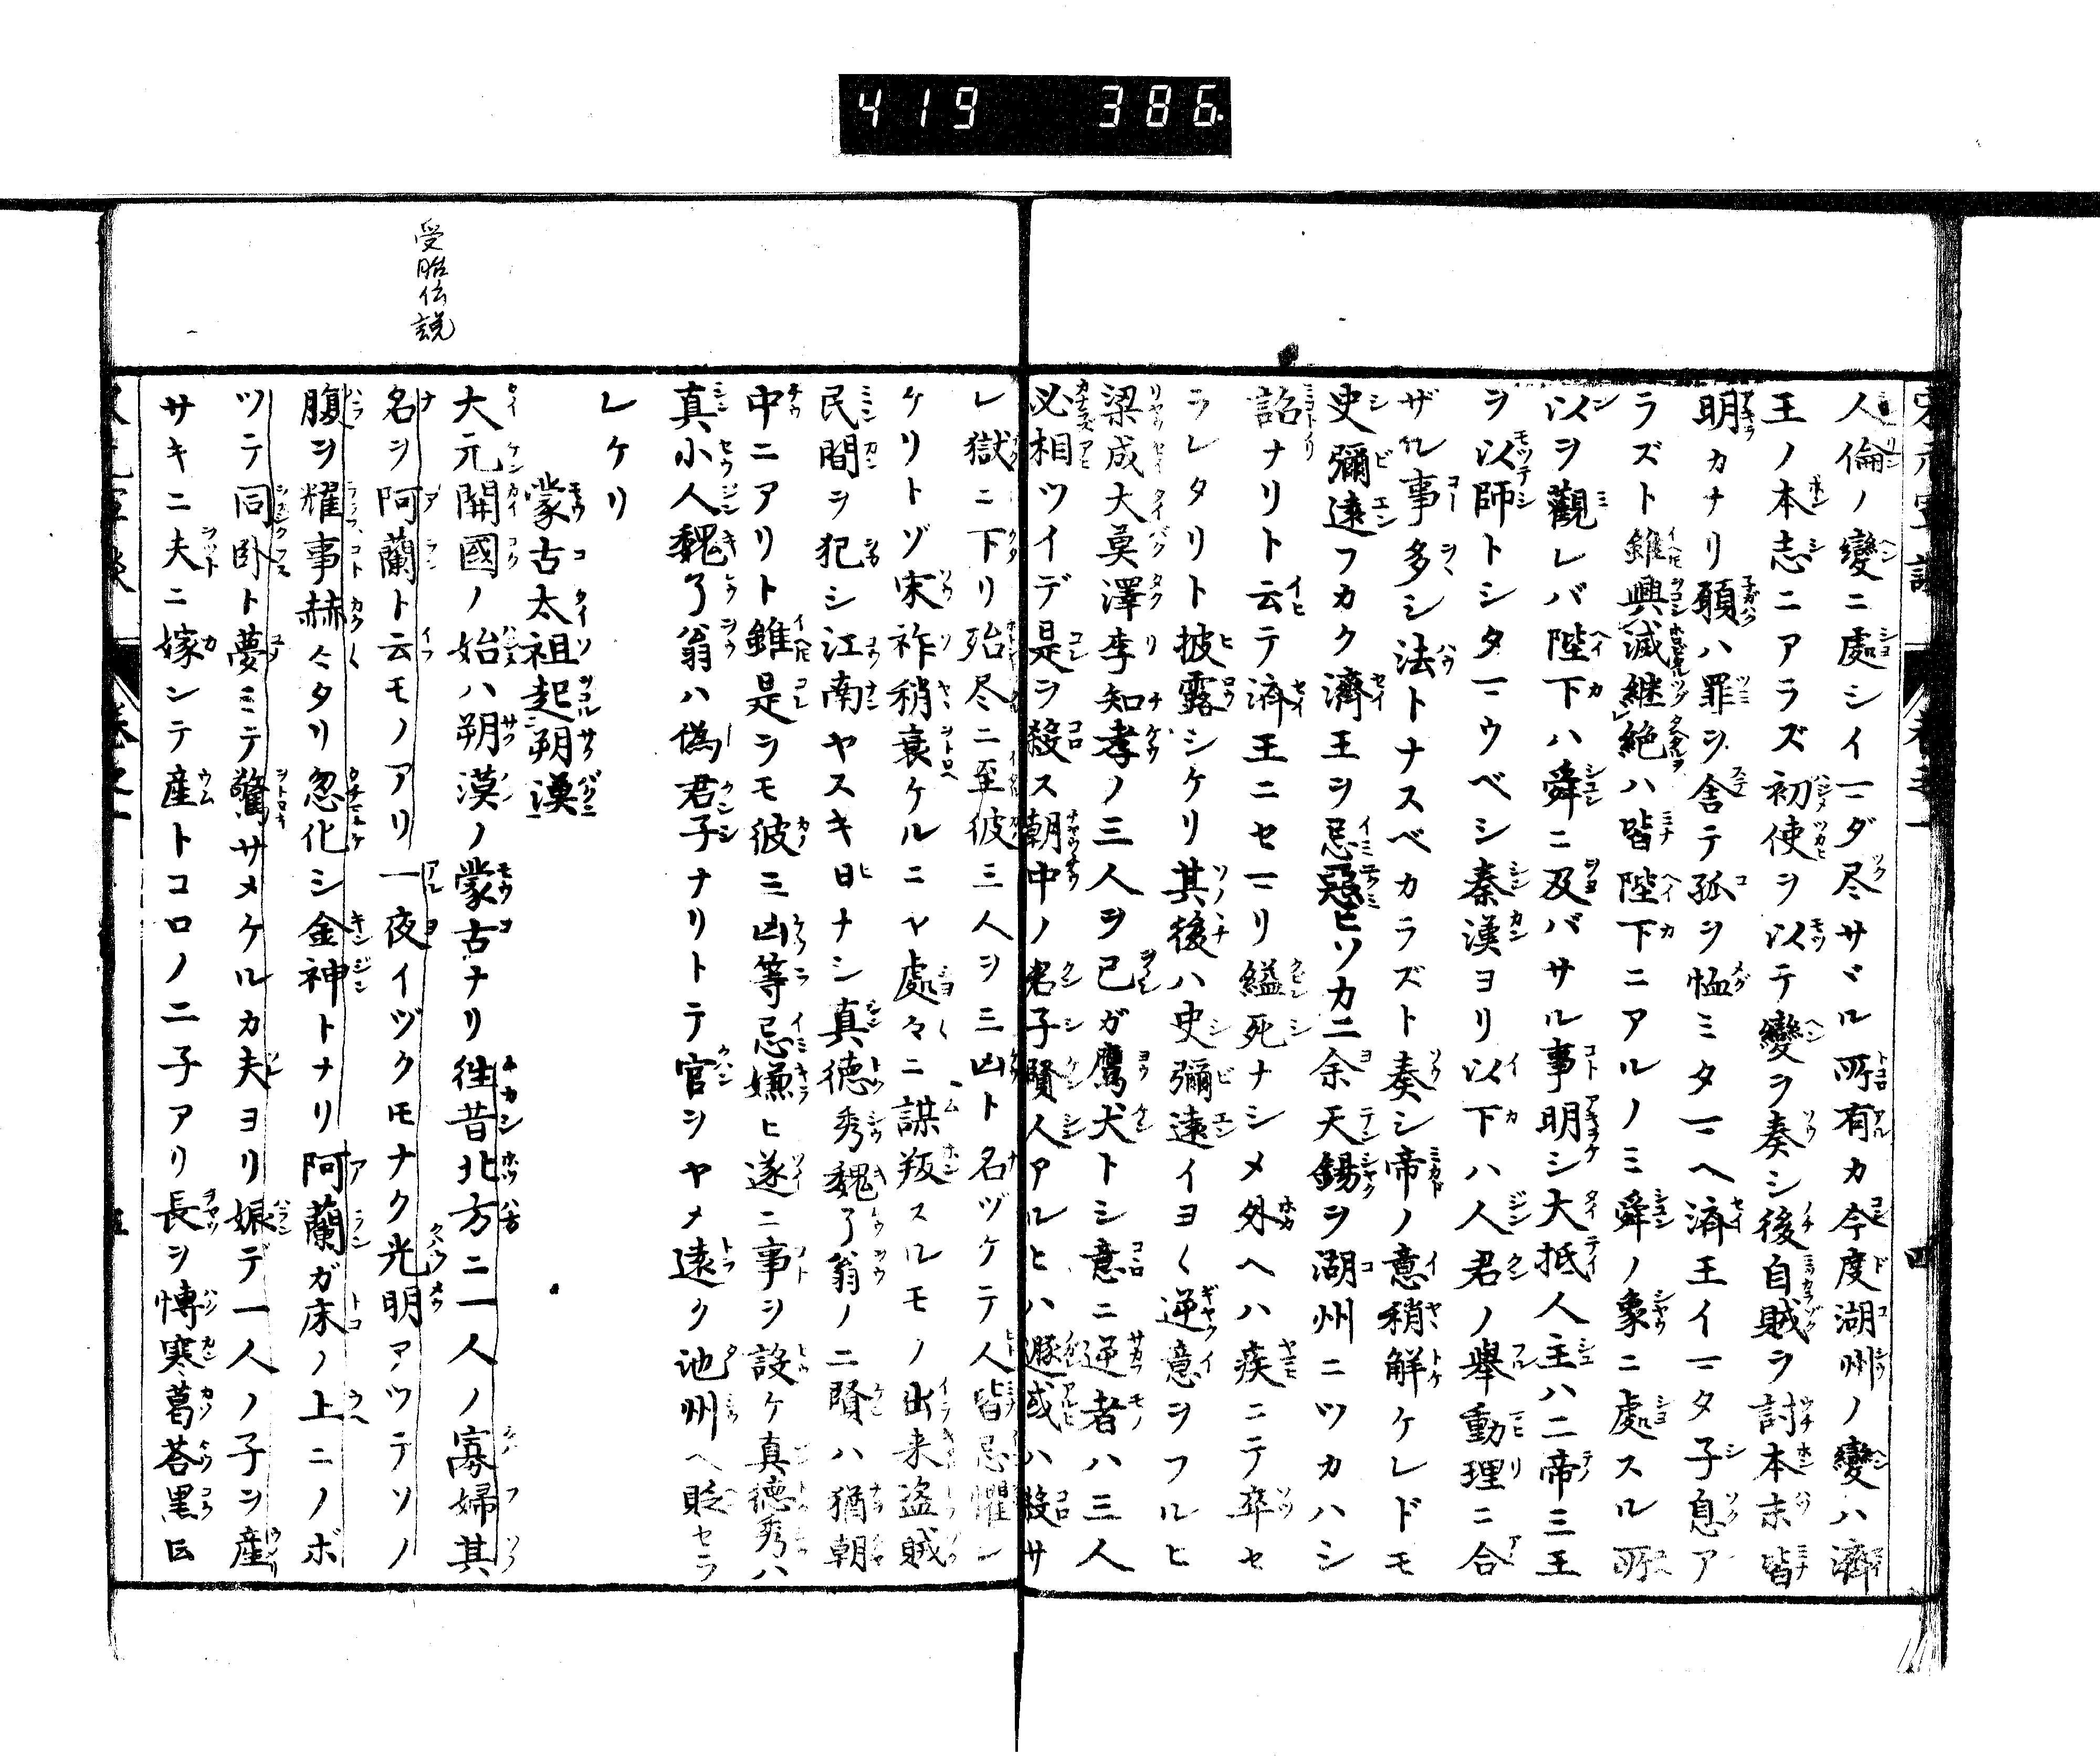 419 386.
人倫ノ變ニ處シイマダ尽サヾル所有カ今度湖州ノ變ハ濟
王ノ本志ニアラズ初使ヲ以テ變ヲ奏シ後自賊ヲ討本末皆
明カナリ願ハ罪ヲ舎テ孤ヲ恤ミタマヘ濟王イマタ子息ア
ラズト雖興滅継絶ハ皆陛下ニアルノミ舜ノ象ニ處スル所
以ヲ觀レバ陛下ハ舜ニ及バサル事明シ大抵人主ハ二帝三王
ヲ以師トシタマウベシ秦漢ヨリ以下ハ人君ノ舉動理ニ合
ザル事多シ法トナスベカラズト奏シ帝ノ意稍解ケレドモ
史彌遠フカク濟王ヲ忌惡ヒソカニ余天錫ヲ湖州ニツカハシ
詔ナリト云テ濟王ニセマリ縊死ナシメ外ヘハ疾ニテ卒セ
ラレタリト披露シケリ其後ハ史彌遠イヨ〱逆意ヲフルヒ
梁成大莫澤李知孝ノ三人ヲ已ガ鷹犬トシ意ニ逆者ハ三人
必相ツイデ是ヲ殺ス朝中ノ君子賢人アルヒハ遯或ハ殺サ
レ獄ニ下リ殆尽ニ至彼三人ヲ三凶ト名ヅケテ人皆忌懼シ
ケリトゾ宋祚稍衰ケルニヤ處々ニ謀叛スルモノ出来盗賊
民間ヲ犯シ江南ヤスキ日ナシ真徳秀魏了翁ノ二賢ハ猶朝
中ニアリト雖是ラモ彼三凶等忌嫌ヒ遂ニ事ヲ設ケ真徳秀ハ
真小人魏了翁ハ偽君子ナリトテ官ヲヤメ遠ク池州ヘ貶セラ
レケリ
蒙古太祖起朔漠
受胎伝説
大元開國ノ始ハ朔漠ノ蒙古ナリ往昔北方ニ一人ノ寡婦其
名ヲ阿蘭ト云モノアリ一夜イヅクモナク光明アツテソノ
腹ヲ耀事赫々タリ忽化シ金神トナリ阿蘭ガ床ノ上ニノボ
ツテ同卧ト夢ミテ驚サメケルカ夫ヨリ娠デ一人ノ子ヲ産
サキニ夫ニ嫁シテ産トコロノ二子アリ長ヲ博寒葛荅黒曰